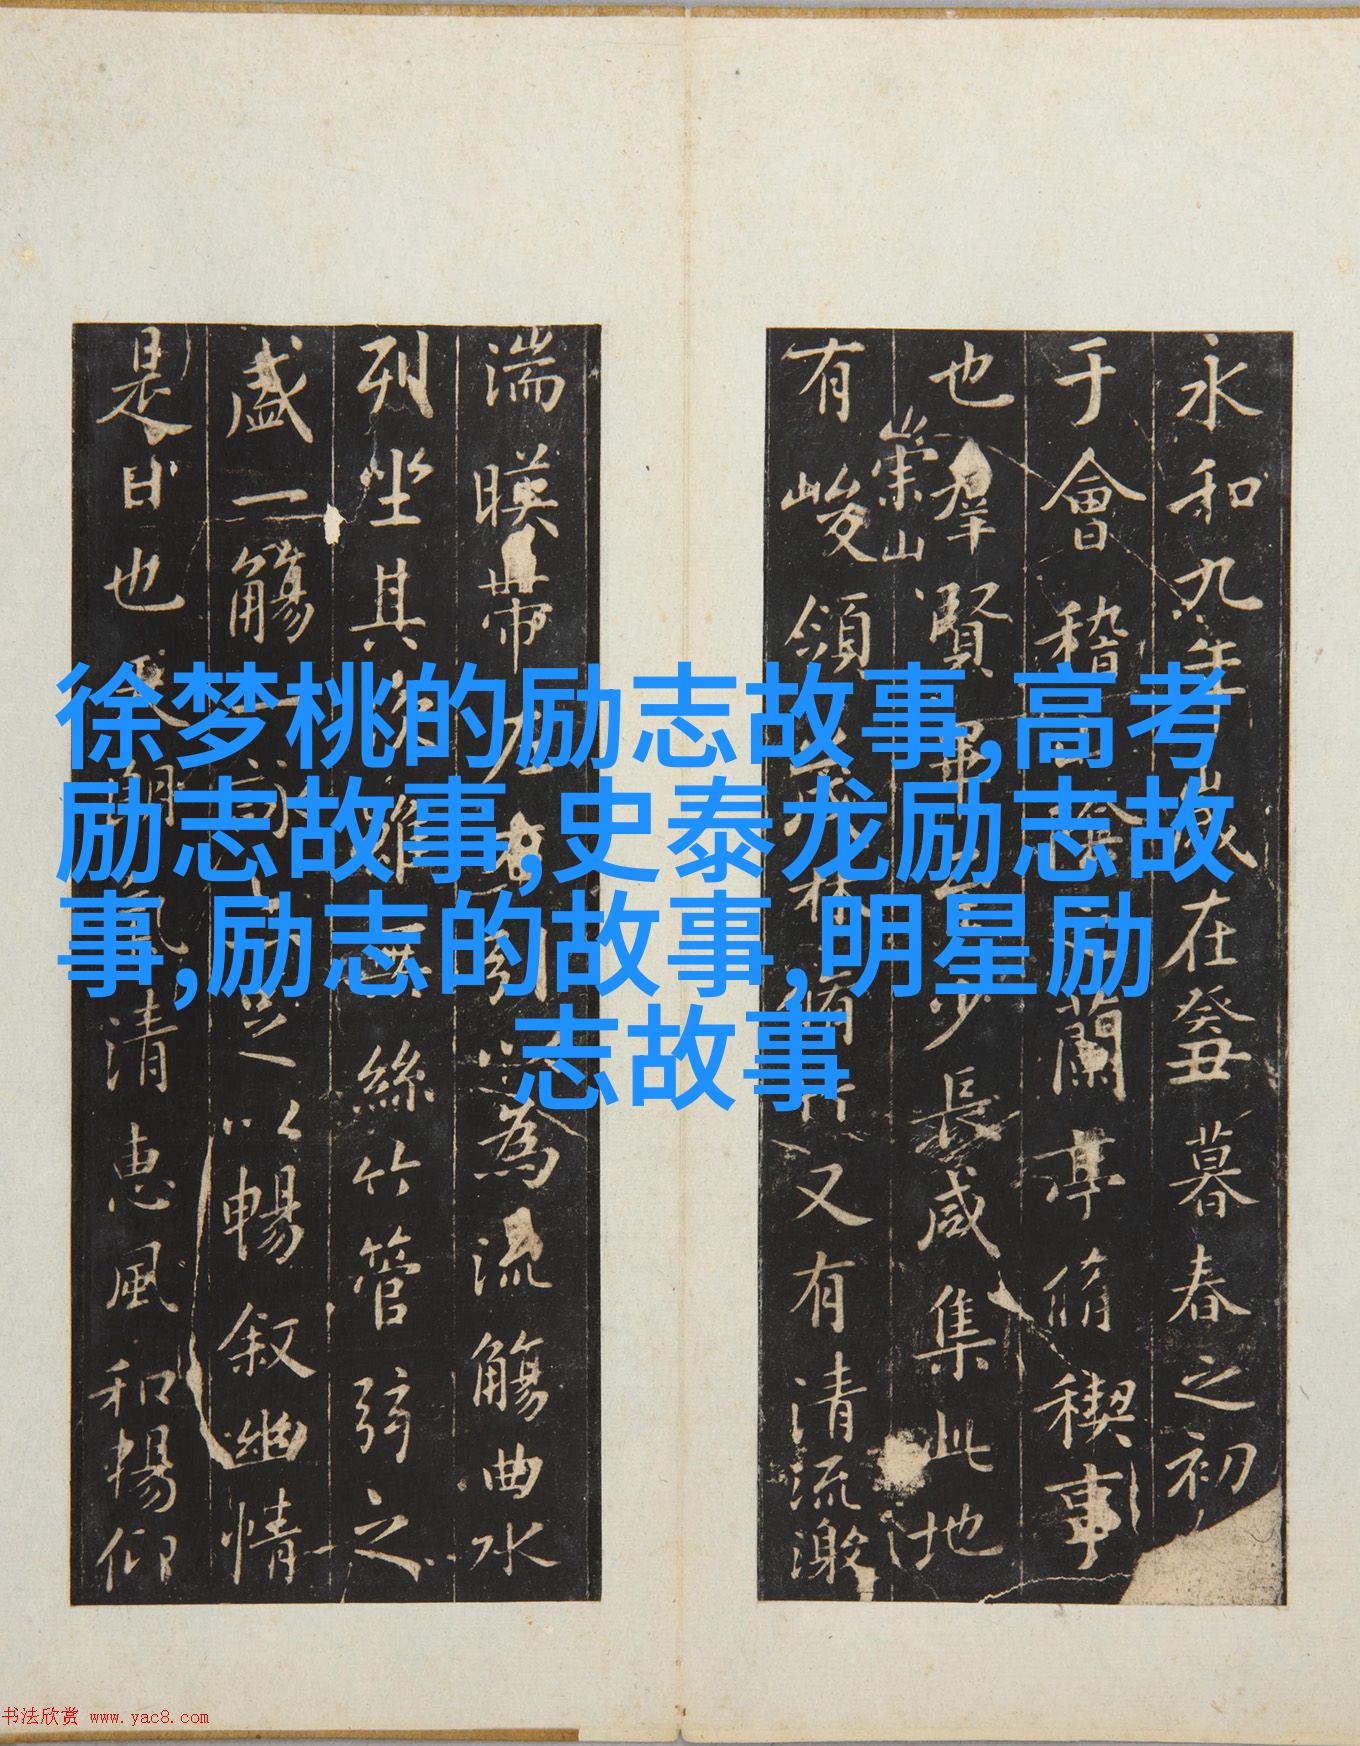 徐梦桃的励志故事,高考
励志故事,史泰龙励志故
事,励志的故事,明星励
志故事
永和九年歲在癸丑暮春之初
于會稽山陰之蘭亭脩禊事
也群賢畢至少長咸集此地
有峻領茂林脩竹又有清流激
崇山
湍暎帶左右引以為流觴曲水
列坐其次雖無絲竹管弦之
盛一觴一詠亦足以暢叙幽情
是日也天朗氣清惠風和暢仰
书法欣赏 www.yac8.com